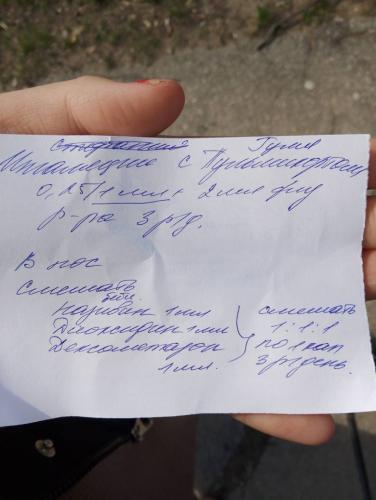 Ингаляции с Пульмикортом
0,25/1 мл + 2 мл физ
р-ра 3 р/д.
В нос
Смешать
Називин 1 мл
Диоксидин 1 мл
Дексаметазон
1 мл.
смешать
1:1:1
по 1 кап
3 р/день.